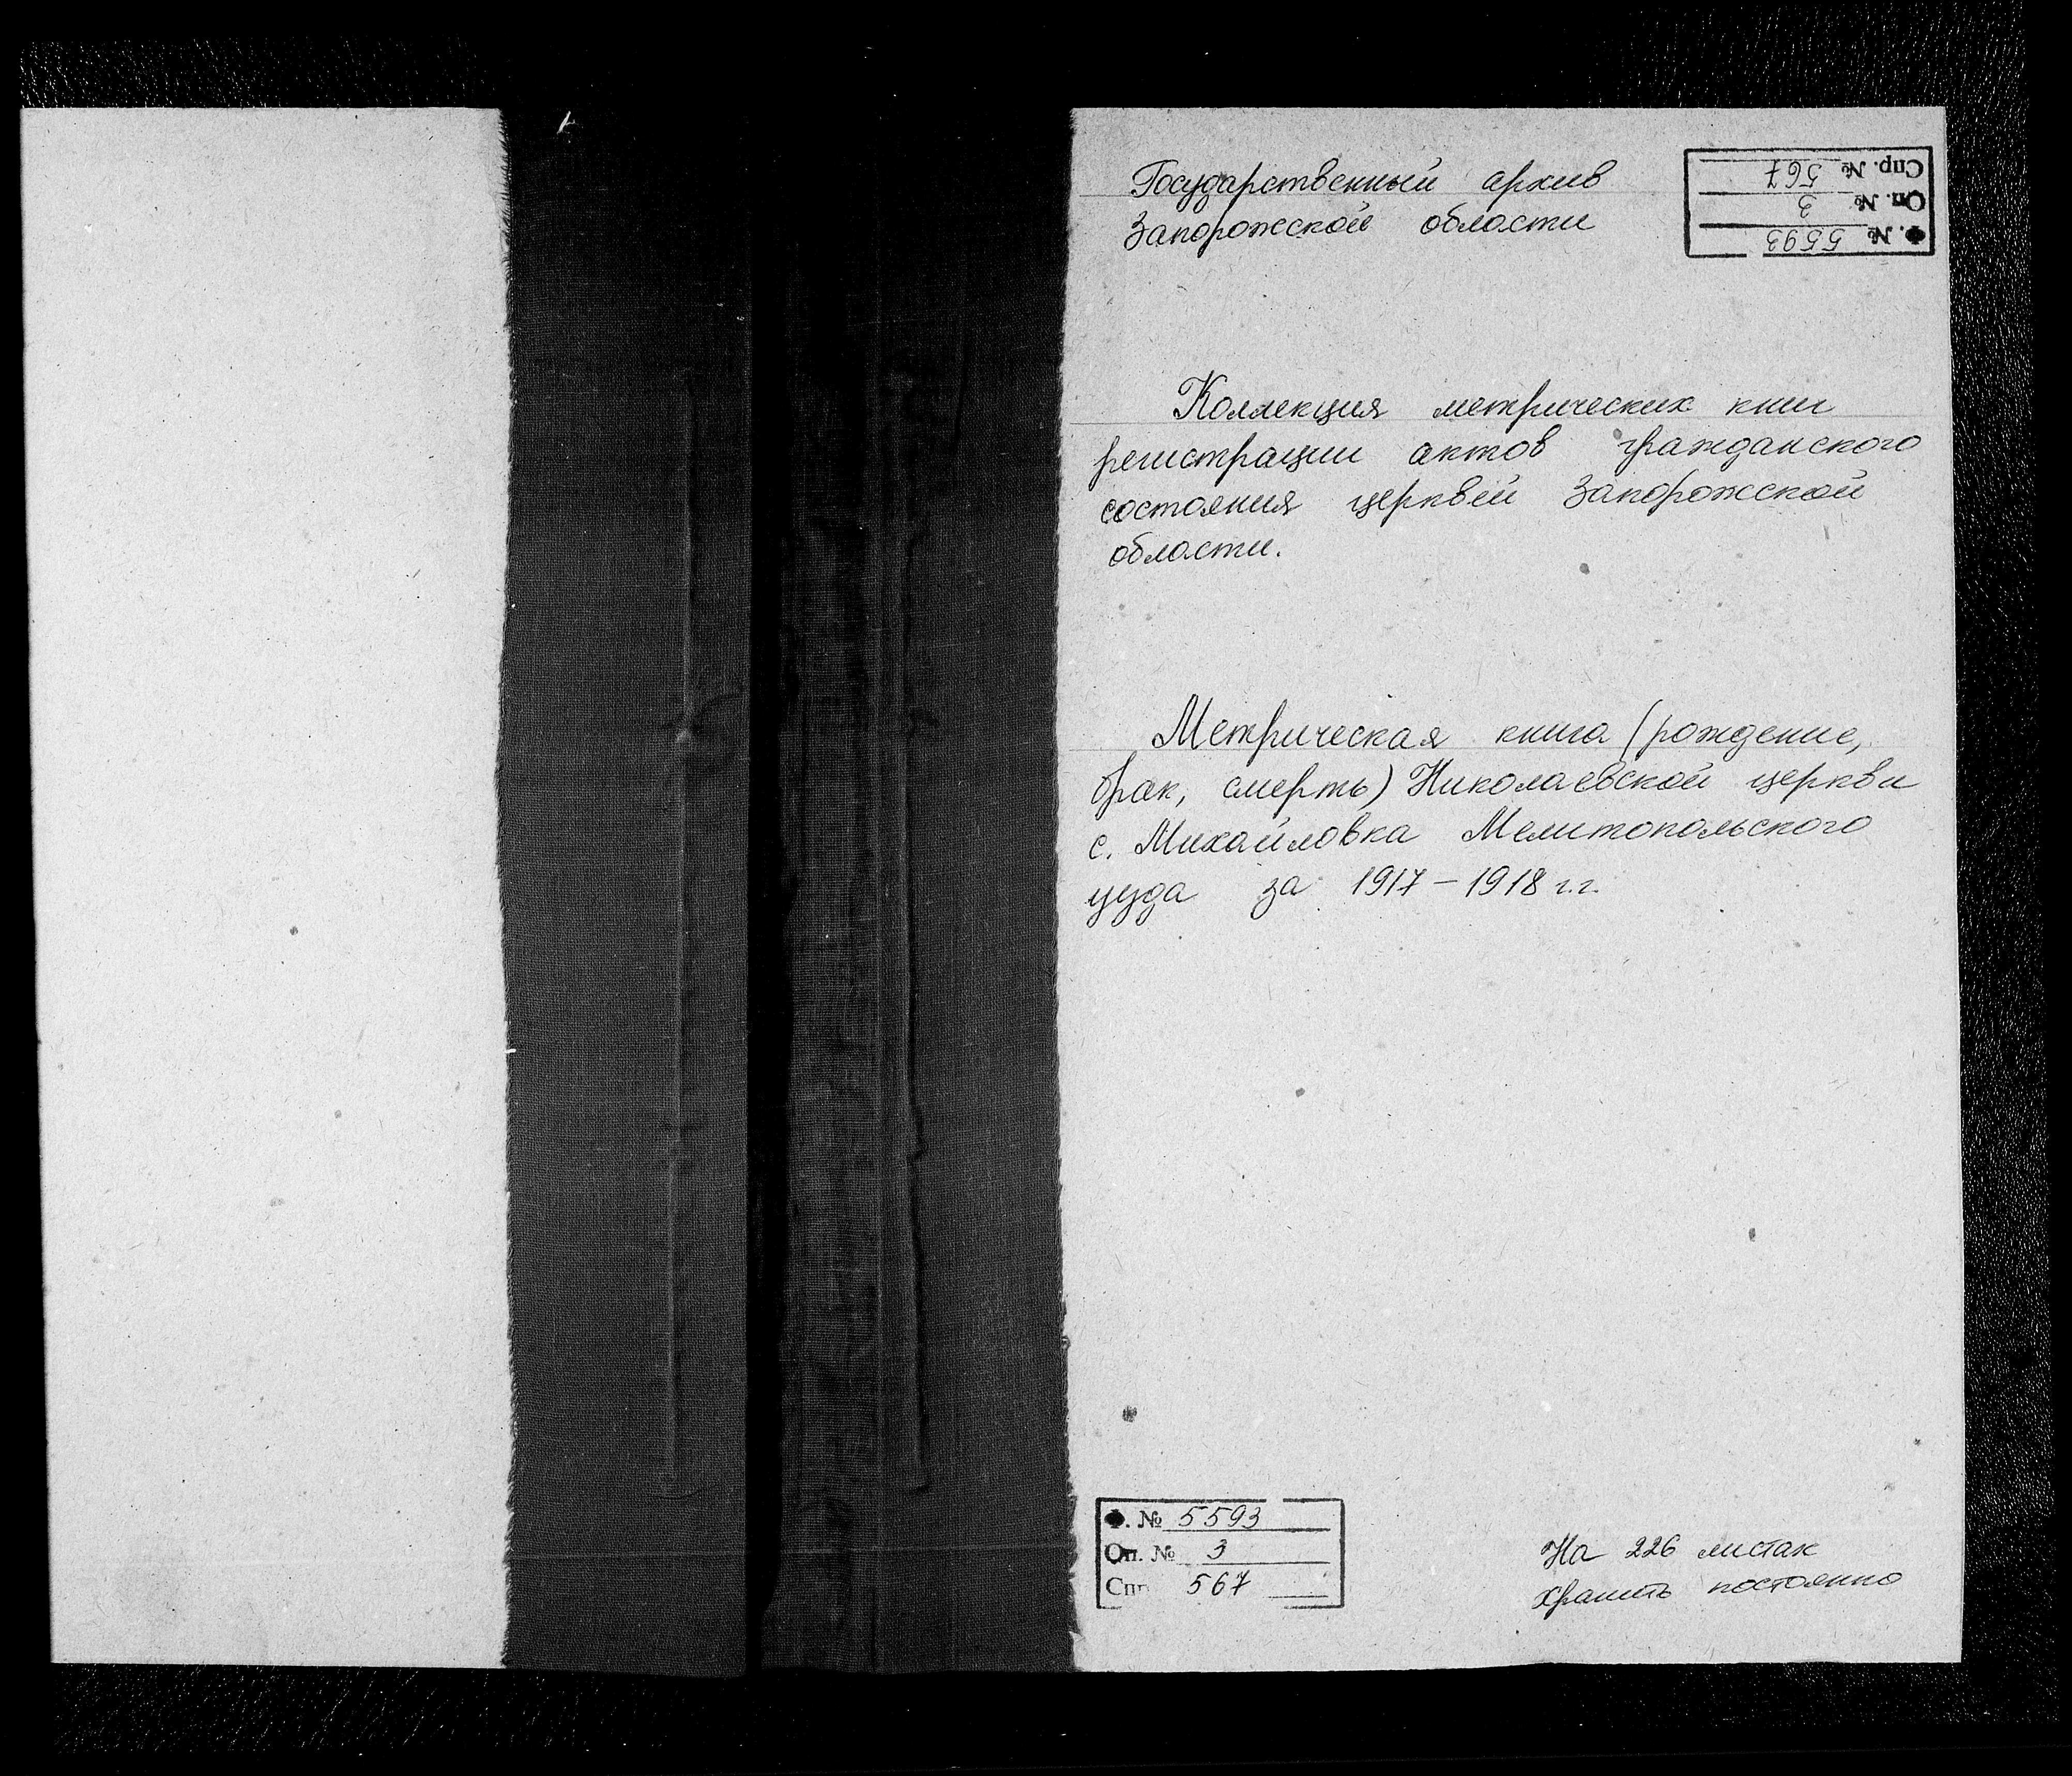 Государственный архив
Запорожской области
Спр. № 567
Оп. № 3
Ф. № 5593
Коллекция метрических книг
регистрации актов гражданского
состояния церквей Запорожской
области.
Метрическая книга (рождение,
брак, смерть) Николаевской церкви
с. Михайловка Мелитопольского
уезда за 1917-1918 г.г.
Ф. № 5593
Оп. № 3
Спр 567
На 226 листах
Хранить постоянно